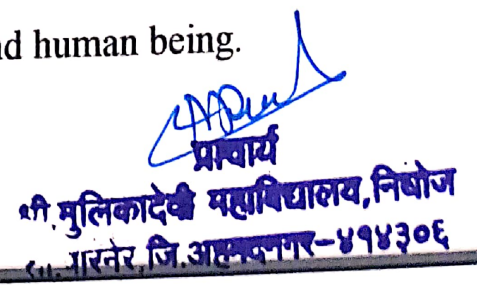 nd human being.
प्राचार्य
श्री.मुलिकादेवी महाविद्यालय,निघोज
ता.पारनेर,जि.अहमदनगर-४१४३०६